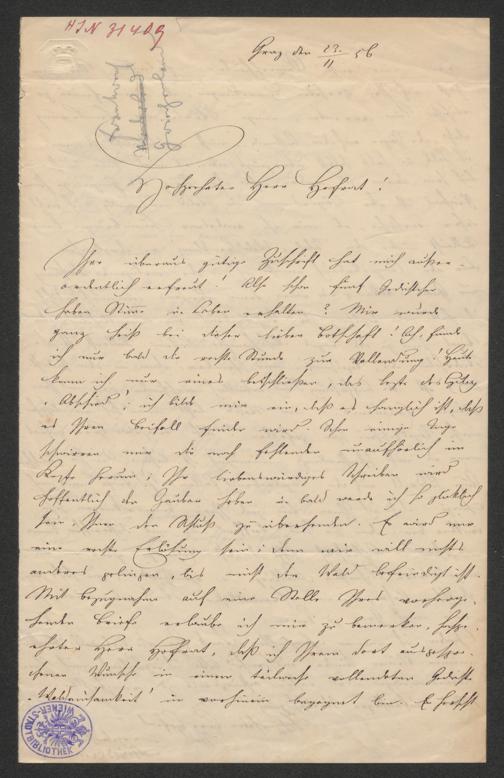 HIN 31409
Graz den 23/11 56
Hochgeehrter Herr Hofrat!
Ihre überaus gütige Zuschrift hat mich außer-
ordentlich erfreut! Also schon fünf Gedichtchen
haben Stimme u. Leben erhalten? Mir wurde
ganz heiß bei dieser lieben Botschaft! Ach, fände
ich nur bald die rechte Stunde zur Vollendung! Heute
kann ich nur eines beschließen, das letzte des
"Abschied"; ich bilde mir ein, daß es sanglich ist, daß
es Ihren Beifall finden wird. Schon einige Tage
schwirren mir die noch fehlenden unaufhörlich im
Kopfe herum; Ihr liebenswürdiges Schreiben wird
hoffentlich den Zauber heben u. bald werde ich so glücklich
sein, Ihnen den Schluß zu übersenden. Es wird mir
eine rechte Erlösung sein; denn mir will nichts
anderes gelingen, bis nicht der Wald befriedigt ist.
Mit Bezugnahme auf eine Stelle Ihres vorherge-
henden Briefes erlaube ich mir zu bemerken, hochge-
ehrter Herr Hofrat, daß ich Ihrem dort ausgespro-
chenen Wunsche in einem teilweise vollendeten Gedichte
"Waldeinsamkeit" im vorhinein begegnet bin. Es herrscht
WIENER STADTBIBLIOTHEK